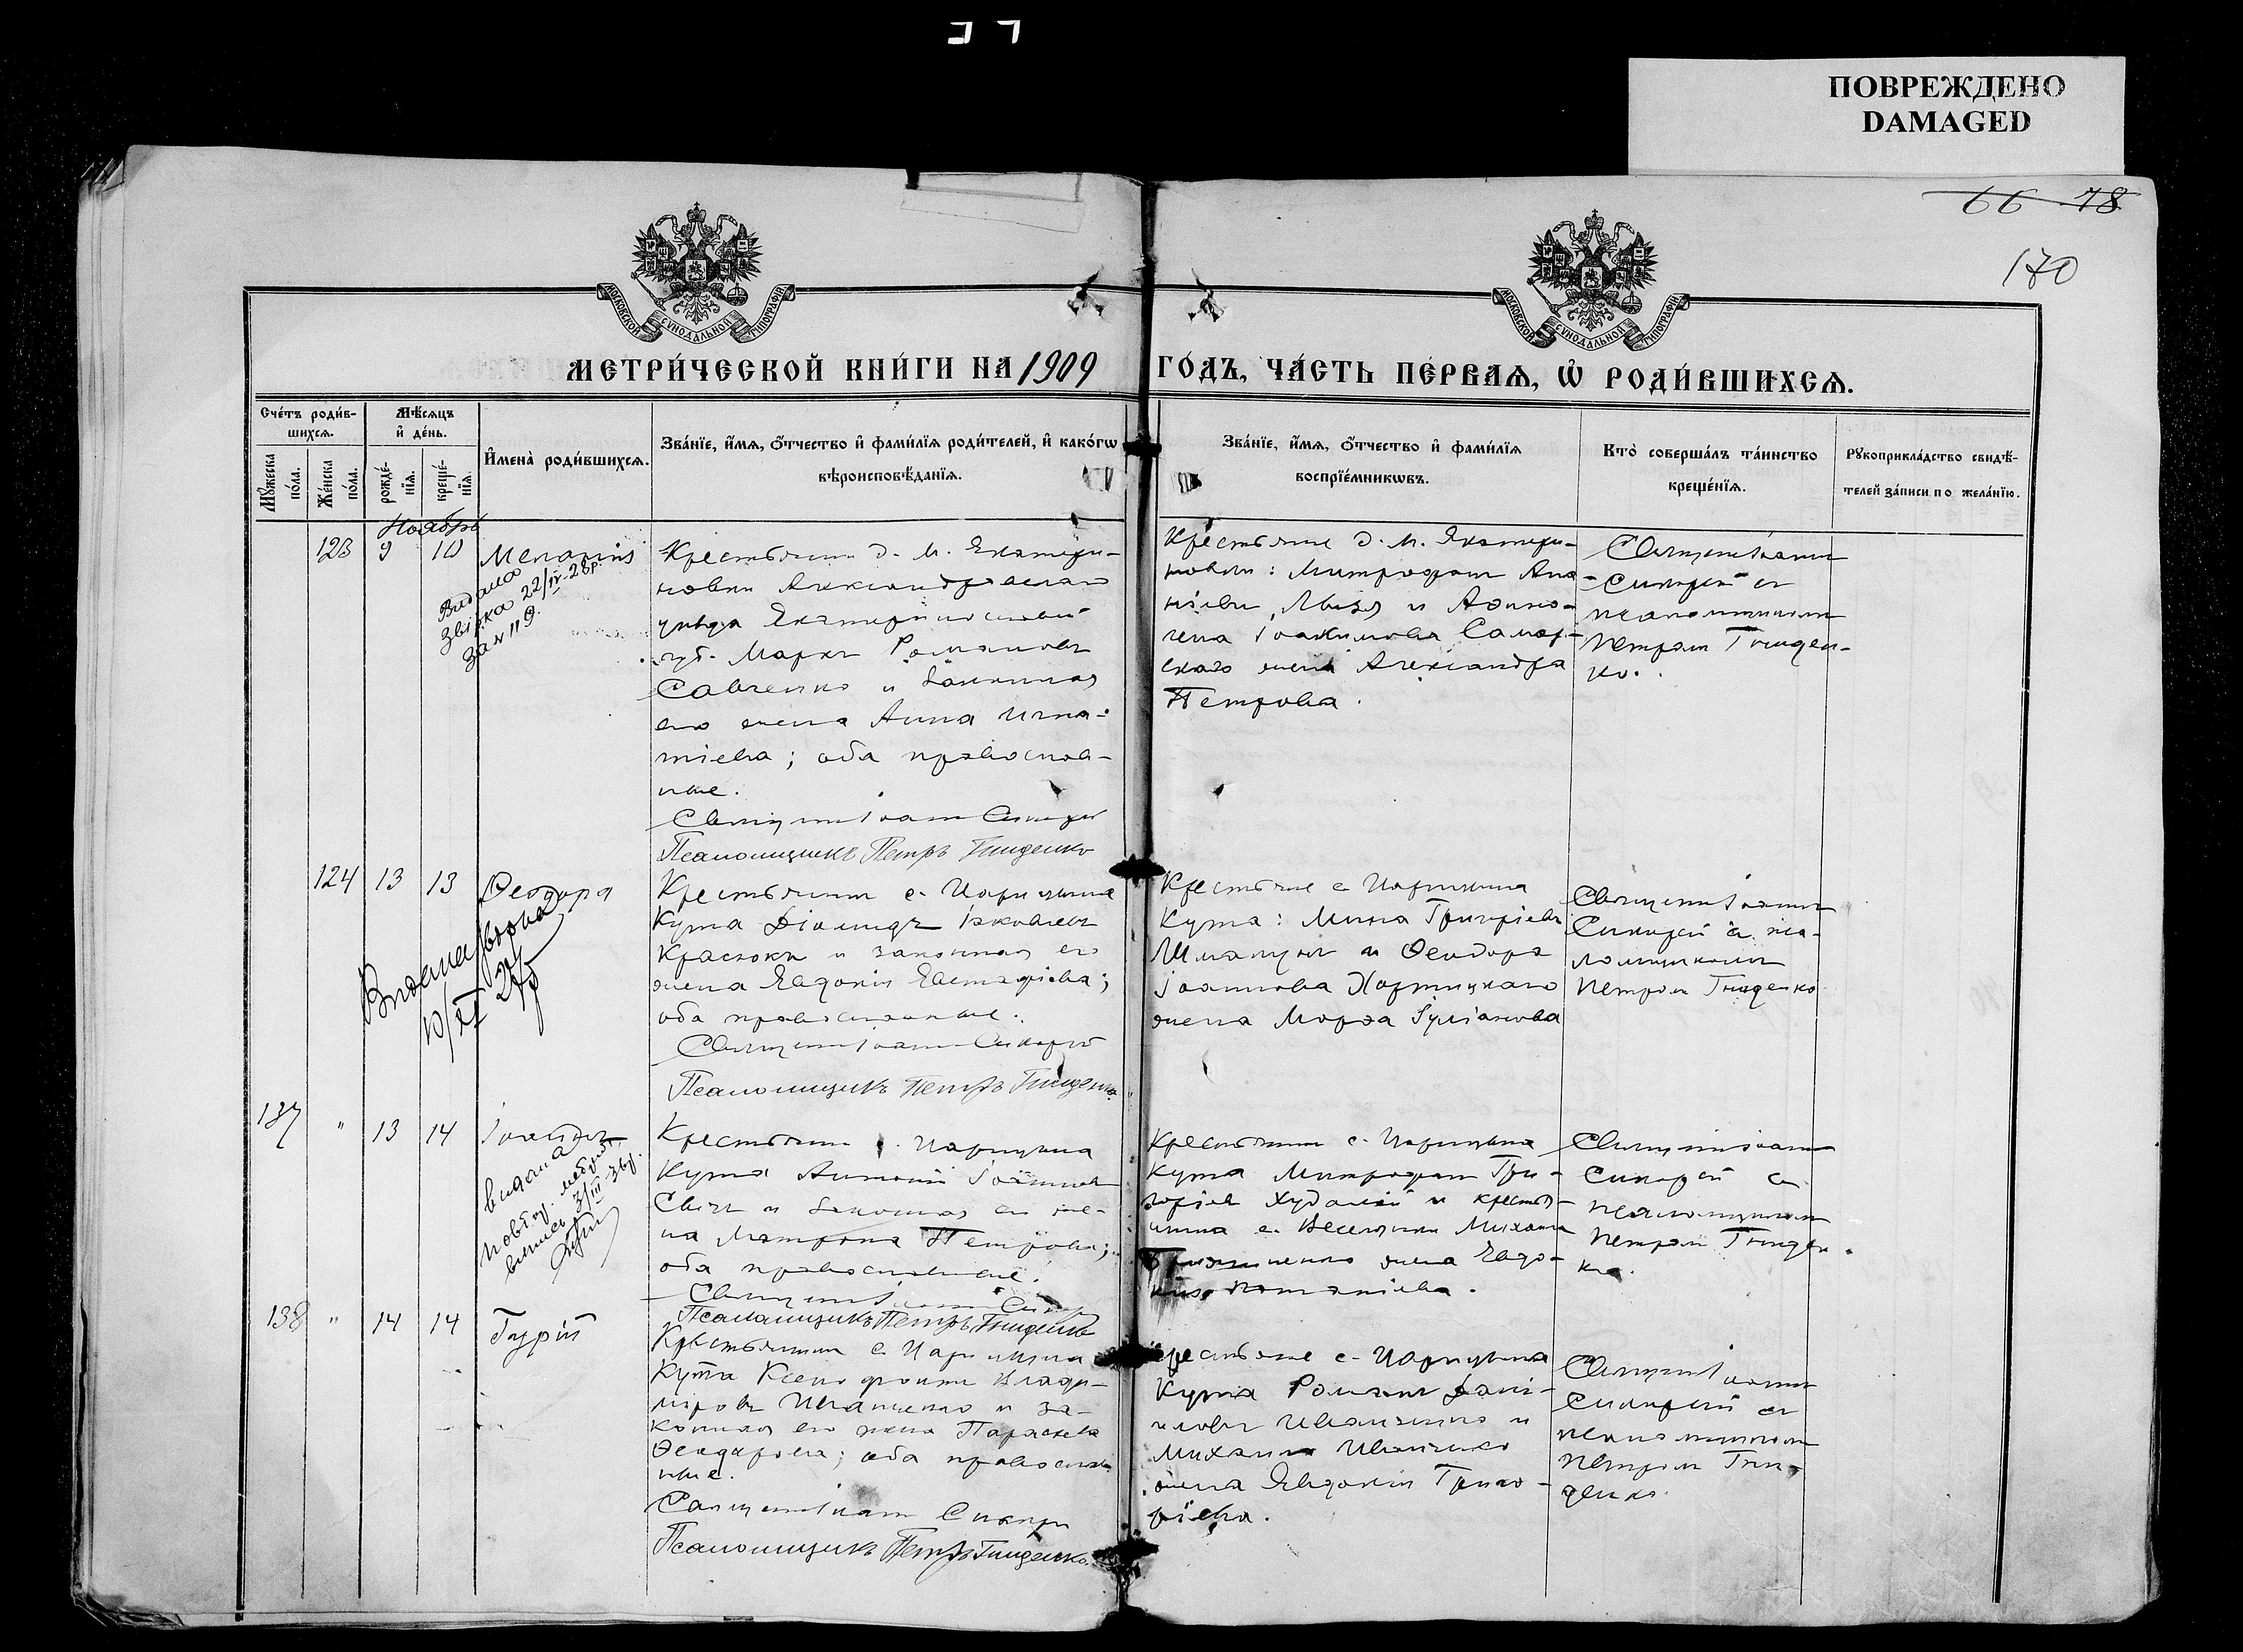 ПОВРЕЖДЕНО
DAMAGED
66 78
170
МОСКОВСКОЙ СУНОДАЛЬНОЙ ТИПОГРАФІИ
МОСКОВСКОЙ СУНОДАЛЬНОЙ ТИПОГРАФІИ
МЕТРИ́ЧЕСКОЙ КНИ́ГИ НА 1909 ГО́ДЪ, ЧА́СТЬ ПЕ́РВАѦ, Ѡ РОДИ́ВШИХСѦ.
Сче́тъ роди́в-
шихсѧ.
Мѣ́сѧцъ
и҆ де́нь.
Мꙋ́жеска
по́ла.
Же́нска
по́ла.
рожде́-
нїѧ.
креще́-
нїѧ.
И҆мена̀ роди́вшихсѧ.
Зва́нїе, и҆́мѧ, ѻ҆́тчество и҆ фами́лїѧ роди́телей, и҆ како́гѡ
вѣроисповѣ́данїѧ.
Зва́нїе, и҆́мѧ, ѻ҆́тчество и҆ фами́лїѧ
воспрїе́мникѡвъ.
Кто̀ соверша́лъ та́инство
креще́нїѧ.
Рꙋкоприкла́дство свидѣ́-
телей за́писи по жела́нїю.
Ноябрь
123 9 10 Меланія
Видана
22/IV-28р.
за № 119.
Крестьянин д. М. Екатери-
новки Александровскаго
уѣзда Екатеринославск
губ. Маркъ Романовъ
Савченко и законная
его жена Анна Игна-
тіева; оба православ-
ные.
Священ Іоанн Сикорск
Псаломщикъ Петръ Гниденко
Крестьяне д. М. Екатери-
новки: Митрофан Ана-
ніевъ Лызя и
Іоакимова Самар-
скаго жена Александра
Петрова.
Священ Іоанн
Сикорск съ
псаломщиком
Петром Гниден-
ко.
124 13 13 Ѳеодора
Видана
10/ 24р
Крестьянин с. Царицына
Кута Діомидъ Іаковлев
Красюкъ и законная его
жена Евдокія Евстафіева;
оба православные.
Священ Іоанн Сикорск
Псаломщикъ Петръ Гниденко
Крестьяне с. Царицына
Кута: Мина Григоріевъ
и Ѳеодора
Іоаннова Хортицкаго
жена Марѳа Іуліанова
Священ Іоанн
Сикорск съ пса-
ломщиком
Петром Гниденко
137 " 13 14 Іоаннъ
видана
3/III 37г.
Крестьянин с. Царицына
Кута Антоній Іоаннов
и законная его же-
на Матрона Петрова;
оба православные.
Священ Іоанн Сикорск
Псаломщикъ Петръ Гниденко
Крестьянин с. Царицына
Кута Митрофан Гри-
горіев Худолей и крестья-
нина с. Веселянки Михаила
жена Евдо-
кія
Священ Іоанн
Сикорск съ
псаломщиком
Петром Гниден-
ко.
138 " 14 14 Гурій
Крестьянин с. Царицына
Кута Ксенофонтъ Влади-
міровъ Иванченко и за-
конная его жена Параскева
Ѳеодорова; оба православ-
ные.
Священ Іоанн Сикорск
Псаломщикъ Петръ Гниденко
Крестьяне с. Царицына
Кута Роман Дані-
иловъ Иванченко и
Михаила Иванченко
жена Евдокія Григо-
ріева.
Священ Іоанн
Сикорск съ
псаломщиком
Петром Гни-
денко.